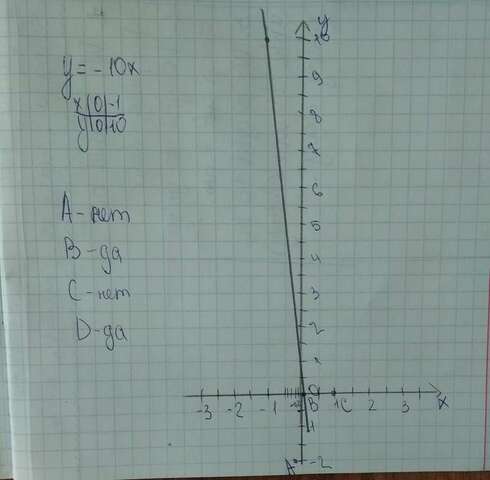 y = -10x
x | 0 | -1
y | 0 | 10
A - нет
B - да
C - нет
D - да
y
10
9
8
7
6
5
4
3
2
1
-3 -2 -1 B 1 C 2 3 x
A -2